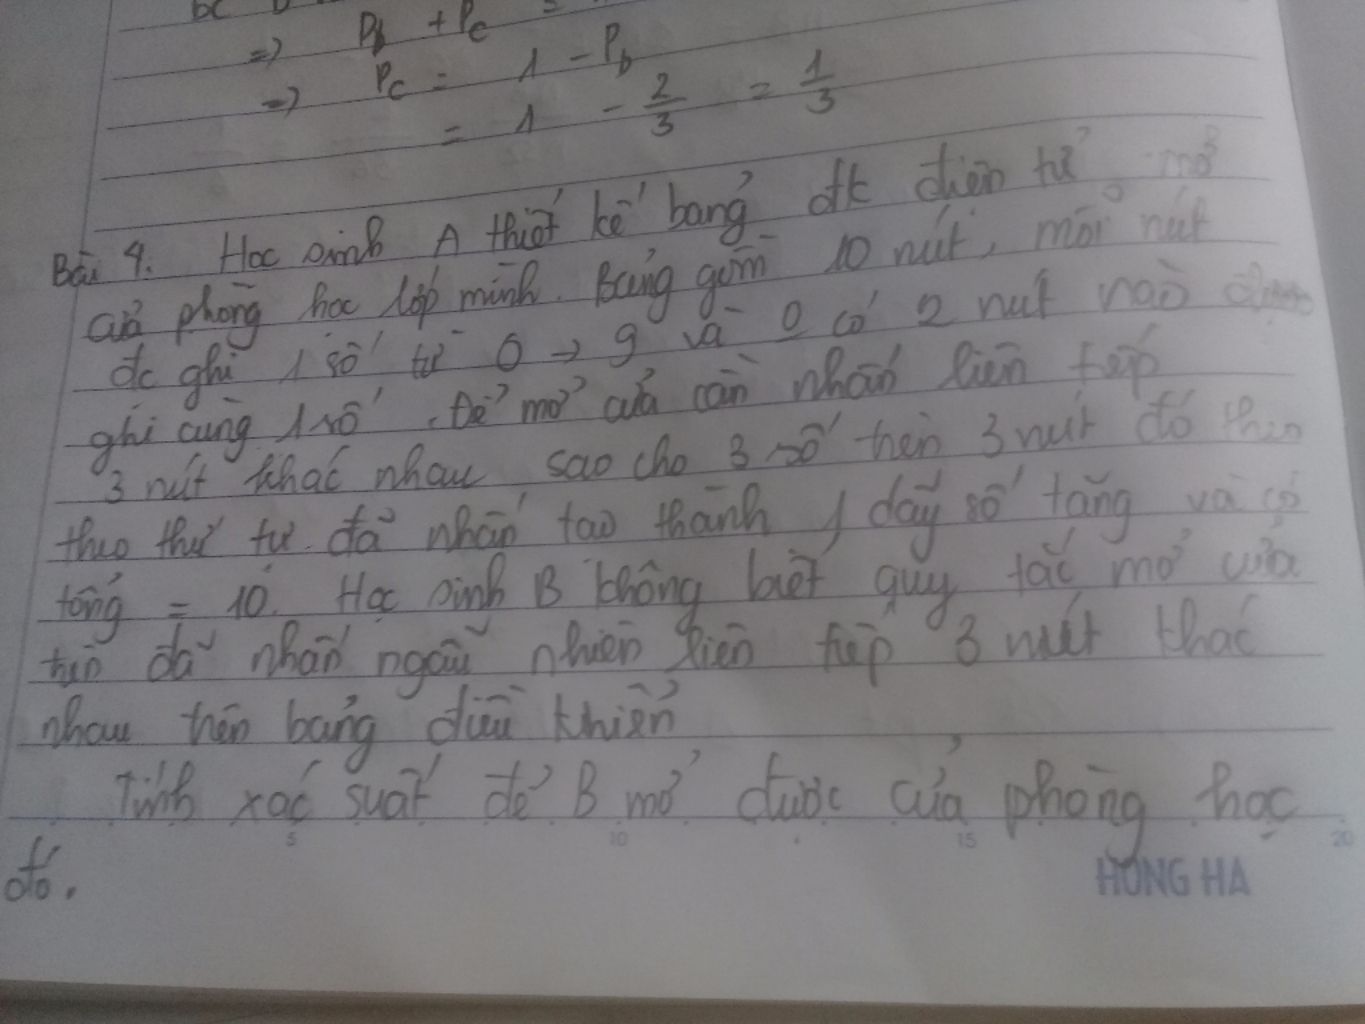 => Pb + Pc =
=> Pc = 1 - Pb
= 1 - 2/3 = 1/3
Bài 4. Học sinh A thiết kế bảng đk điện tử mở
cửa phòng học lớp mình. Bảng gồm 10 nút, mỗi nút
đc ghi 1 số từ 0 → 9 và 0 có 2 nút nào
ghi cùng 1 số. Để mở cửa cần nhấn liên tiếp
3 nút khác nhau sao cho 3 số trên 3 nút đó theo
theo thứ tự đã nhấn tạo thành 1 dãy số tăng và có
tổng = 10. Học sinh B không biết quy tắc mở cửa
trên đã nhấn ngẫu nhiên liên tiếp 3 nút khác
nhau trên bảng điều khiển
Tính xác suất để B mở được cửa phòng học
đó.
5 10 15 20
HONG HA